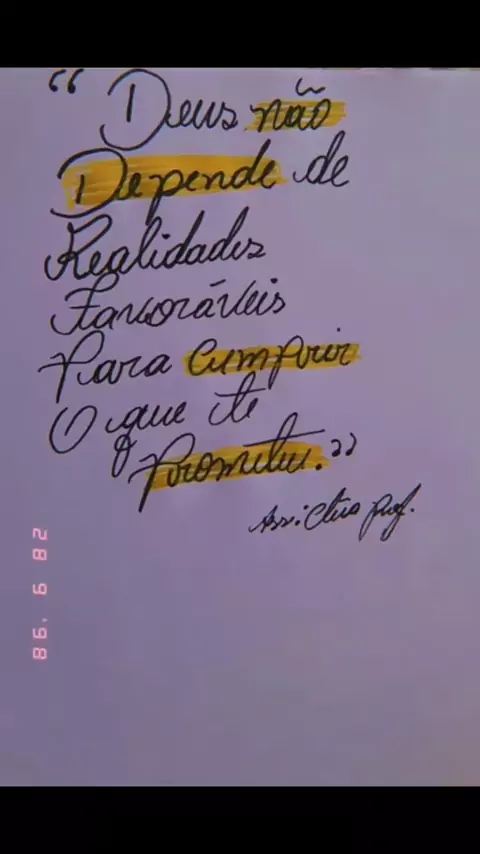 “ Deus não
Depende de
Realidades
Favoráveis
Para Cumprir
O que te
Prometeu.”
prof.
86. 6 '98